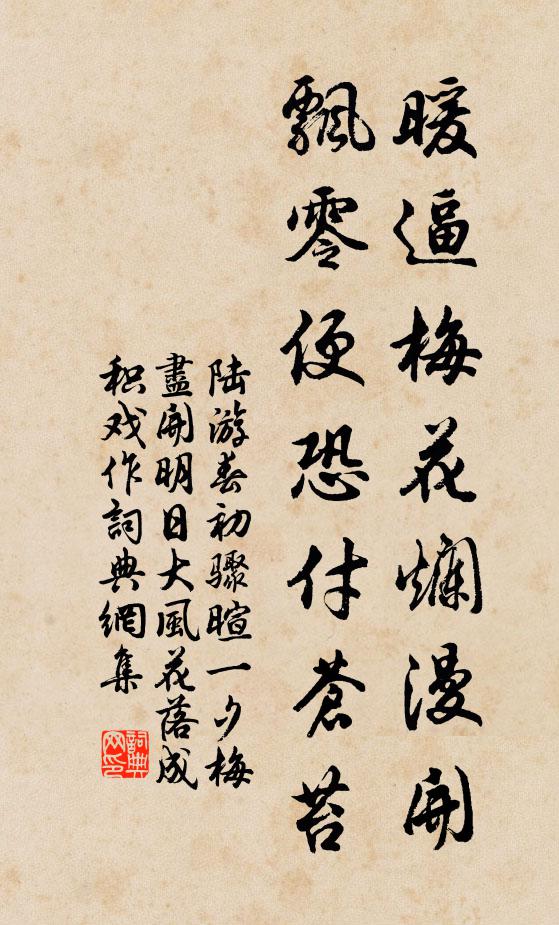 暖逼梅花爛漫開
飄零便恐付蒼苔
陆游春初骤暄一夕梅
盡開明日大風花落成
积戏作詞典網集
詞典網印